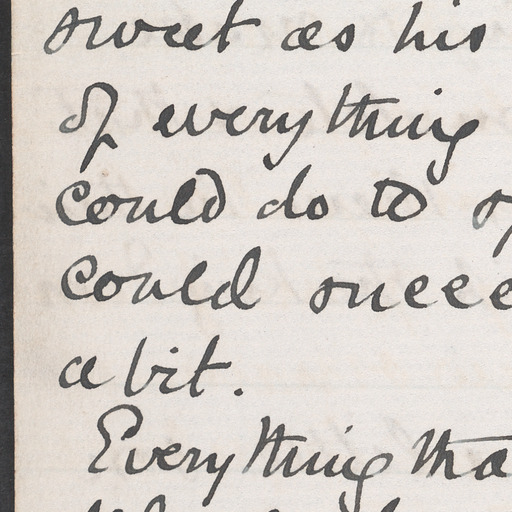 sweet as his
of everything
could do to
could succe
a bit.
Everything tha